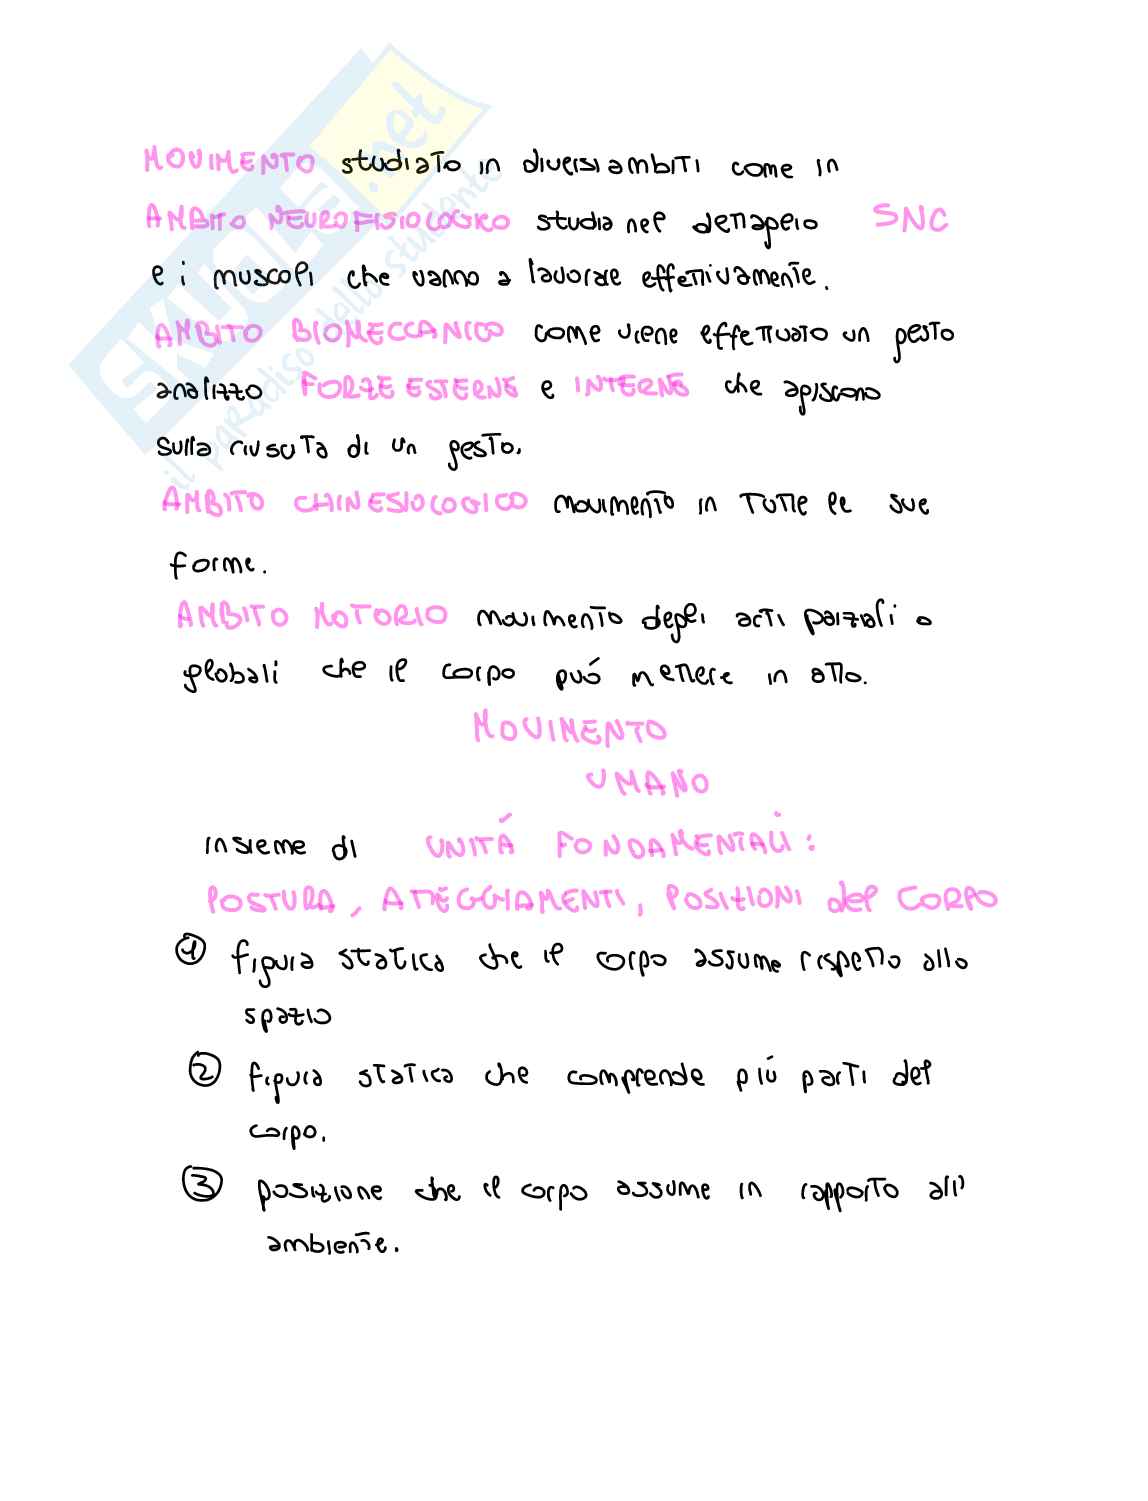 MOVIMENTO studiato in diversi ambiti come in
AMBITO NEUROFISIOLOGICO studia nel dettaglio SNC
e i muscoli che vanno a lavorare effettivamente.
AMBITO BIOMECCANICO come viene effettuato un gesto
analizzo FORZE ESTERNE e INTERNE che agiscono
sulla riuscita di un gesto.
AMBITO CHINESIOLOGICO movimento in tutte le sue
forme.
AMBITO MOTORIO movimento degli atti parziali o
globali che il corpo può mettere in atto.
MOVIMENTO
UMANO
insieme di UNITÁ FONDAMENTALI:
POSTURA, ATTEGGIAMENTI, POSIZIONI del CORPO
① figura statica che il corpo assume rispetto allo
spazio
② figura statica che comprende piú parti del
corpo.
③ posizione che il corpo assume in rapporto all'
ambiente.
SKUOLA.net
il paradiso dello studente